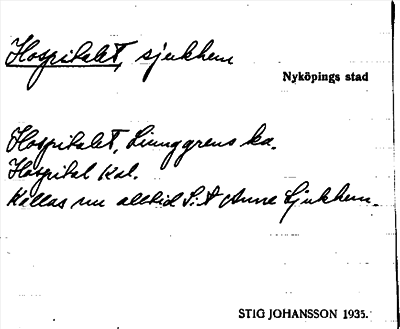 Hospitalet, sjukhem
Nyköpings stad
Hospitalet, Ljunggrens ka.
Hospital Kal.
Kallas nu alltid S:t Anne Sjukhem.
STIG JOHANSSON 1935.